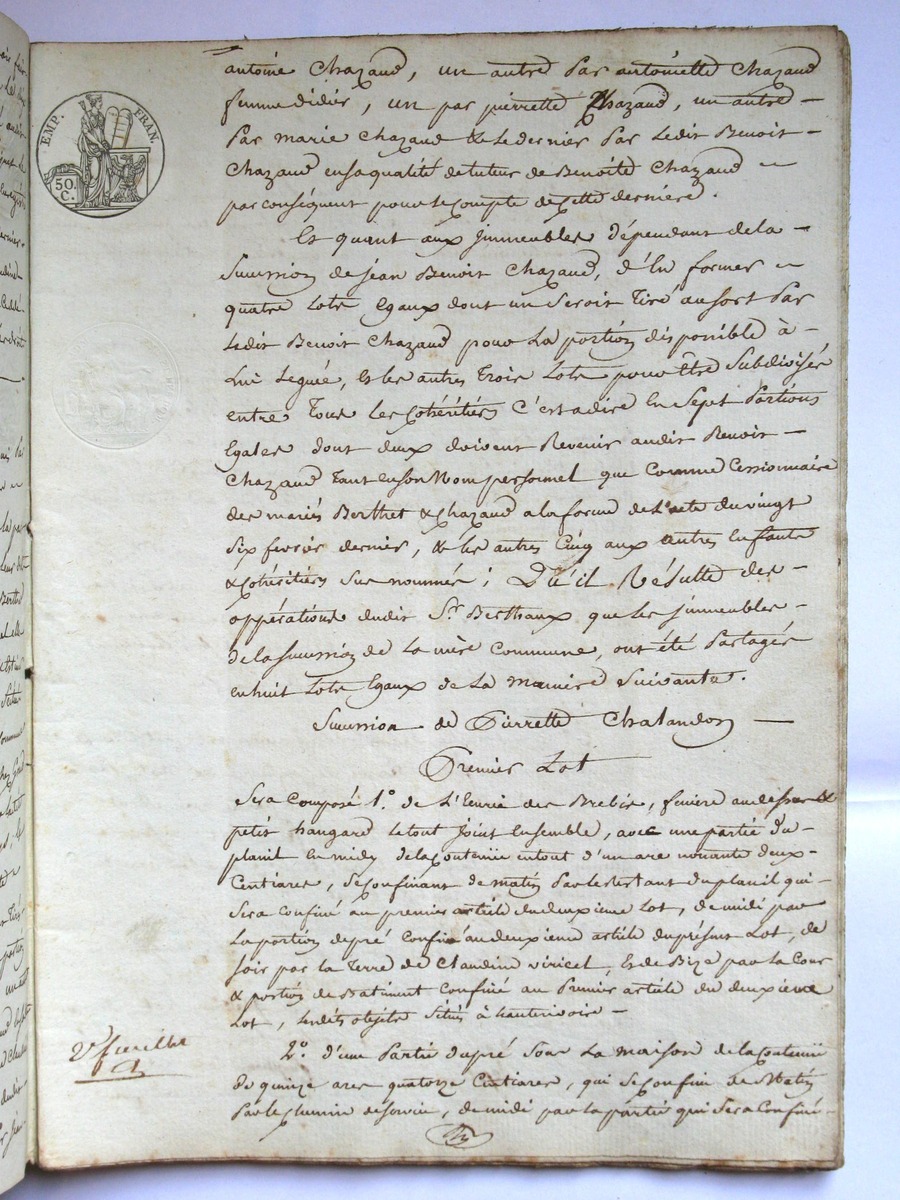 EMP. FRAN.
50. C.
antoine Chazaud, un autre Par antoinette Chazaud
femme didier, un par pierrette Chazaud, un autre –
Par marie Chazaud & Le dernier Par Ledit Benoit –
Chazaud en sa qualité de tuteur de Benoite Chazaud –
par conséquent pour le Compte de Cette derniere.
Et quant aux Jmmeubles dépendant de la –
Succession de jean Benoit Chazaud, d'En former –
quatre Lots Egaux dont un Seroit Tiré au sort Par
Ledit Benoit Chazaud pour La portion disponible à –
Lui Leguée, Et les autres Trois Lots pour être Subdivisés
entre Tous les Cohéritiers C'est adire En Sept Portions
Egales dont deux doivent Revenir audit Benoit –
Chazaud Tant en son Nom personnel que Comme Cessionnaire
des mariés Berthet & Chazaud a la forme de l'acte du vingt
Six fevrier dernier, & les autres Cinq aux autres Enfants
& Cohéritiers Sus nommés; Qu'il Résulte des –
oppérations dudit Sr. Berthaux que les jmmeubles –
de la Succession de La mère Commune, ont été Partagés
en huit Lots Egaux de La maniere Suivante.
Succession de Pierrette Chalandon –
Premier Lot
Sera Composé 1.o de L'Ecurie des Brebis, feniere au dessus &
petit hangard le tout Joint Ensemble, avec une partie du –
planil En midy de la Contenue en tout d'un are nonante deux –
Centiares, Se Confinant de matin Par le restant du planil qui –
Sera Confiné au premier article du deuxieme Lot, de midi par
La portion de pré Confiné au deuxieme article du présent Lot, de
soir par la Terre de Claudine viricel, Et de Bize par la Cour
& portion de Batiment Confiné au Premier article du deuxieme
Lot, lesdits objets Situés à hauterivoire –
2.o d'une Partie du pré Sous La maison de la Contenue
De quinze ares quatorze Centiares, qui Se Confine de Matin
Par le Chemin de Service, de midi par la partie qui Sera Confiné –
2e feuillet